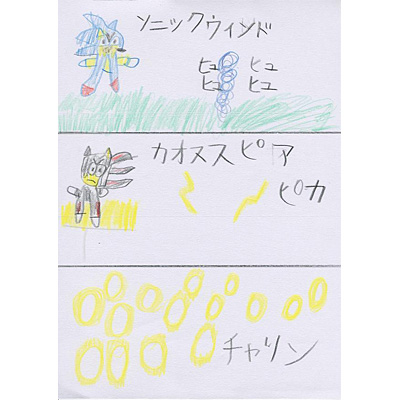 ソニックウィンド
ヒュ ヒュ
ヒュ ヒュ
カオススピア
ピカ
チャリン